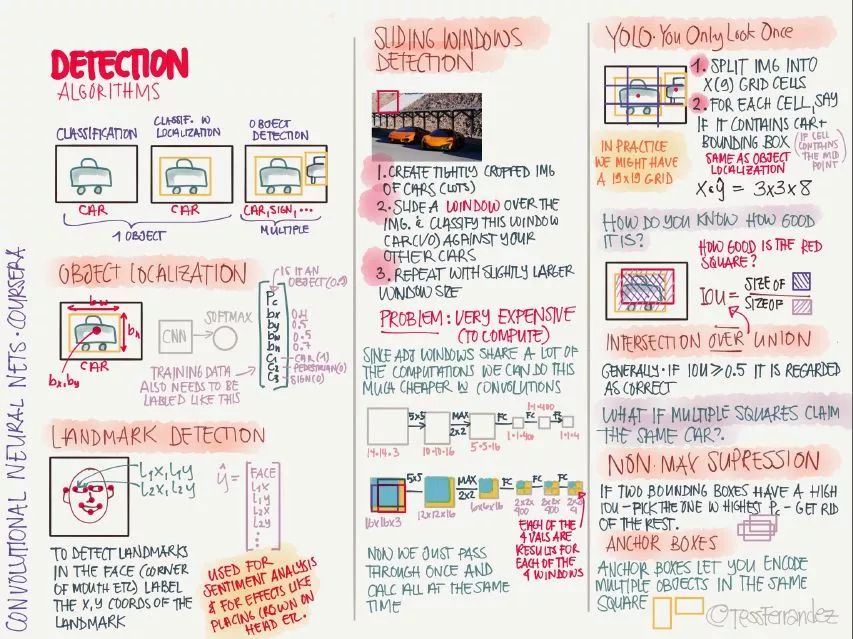 CONVOLUTIONAL NEURAL NETS · COURSERA
DETECTION
ALGORITHMS
CLASSIFICATION
CLASSIF. W
LOCALIZATION
OBJECT
DETECTION
CAR
CAR
CAR, SIGN, ...
1 OBJECT
MULTIPLE
OBJECT LOCALIZATION
bw
bh
CAR
bx, by
CNN
SOFTMAX
IS IT AN
OBJECT (0.1)
Pc
bx 0.4
by 0.5
bw 0.5
bh 0.7
C1 - CAR (1)
C2 - PEDESTRIAN (0)
C3 - SIGN (0)
TRAINING DATA
ALSO NEEDS TO BE
LABLED LIKE THIS
LANDMARK DETECTION
l1x, l1y
l2x, l2y
ŷ =
FACE
l1x
l1y
l2x
l2y
⋮
TO DETECT LANDMARKS
IN THE FACE (CORNER
OF MOUTH ETC) LABEL
THE X,Y COORDS OF THE
LANDMARK
USED FOR
SENTIMENT ANALYSIS
& FOR EFFECTS LIKE
PLACING CROWN ON
HEAD ETC.
SLIDING WINDOWS
DETECTION
1. CREATE TIGHTLY CROPPED IMG
OF CARS (LOTS)
2. SLIDE A WINDOW OVER THE
IMG. & CLASSIFY THIS WINDOW
CAR (1/0) AGAINST YOUR
OTHER CARS
3. REPEAT WITH SLIGHTLY LARGER
WINDOW SIZE
PROBLEM: VERY EXPENSIVE
(TO COMPUTE)
SINCE ADJ WINDOWS SHARE A LOT OF
THE COMPUTATIONS WE CAN DO THIS
MUCH CHEAPER W CONVOLUTIONS
5x5
MAX
2x2
FC
1·1·400
FC
14·14·3
10·10·16
5·5·16
1·1·400
1·1·4
5x5
MAX
2x2
FC
FC
FC
16x16x3
12x12x16
6x6x16
2x2x
400
2x2x
400
2x2x
4
EACH OF THE
4 VALS ARE
RESULTS FOR
EACH OF THE
4 WINDOWS
NOW WE JUST PASS
THROUGH ONCE AND
CALC ALL AT THE SAME
TIME
YOLO · YOU ONLY LOOK ONCE
1. SPLIT IMG INTO
X (9) GRID CELLS
2. FOR EACH CELL, SAY
IF IT CONTAINS CAR +
BOUNDING BOX
(IF CELL
CONTAINS
THE MID
POINT)
IN PRACTICE
WE MIGHT HAVE
A 19x19 GRID
SAME AS OBJECT
LOCALIZATION
X & ŷ = 3x3x8
HOW DO YOU KNOW HOW GOOD
IT IS?
HOW GOOD IS THE RED
SQUARE?
IOU = SIZE OF
SIZE OF
INTERSECTION OVER UNION
GENERALLY · IF IOU ≥ 0.5 IT IS REGARDED
AS CORRECT
WHAT IF MULTIPLE SQUARES CLAIM
THE SAME CAR?
NON·MAX SUPRESSION
IF TWO BOUNDING BOXES HAVE A HIGH
IOU - PICK THE ONE W HIGHEST Pc - GET RID
OF THE REST.
ANCHOR BOXES
ANCHOR BOXES LET YOU ENCODE
MULTIPLE OBJECTS IN THE SAME
SQUARE
@TessFerrandez